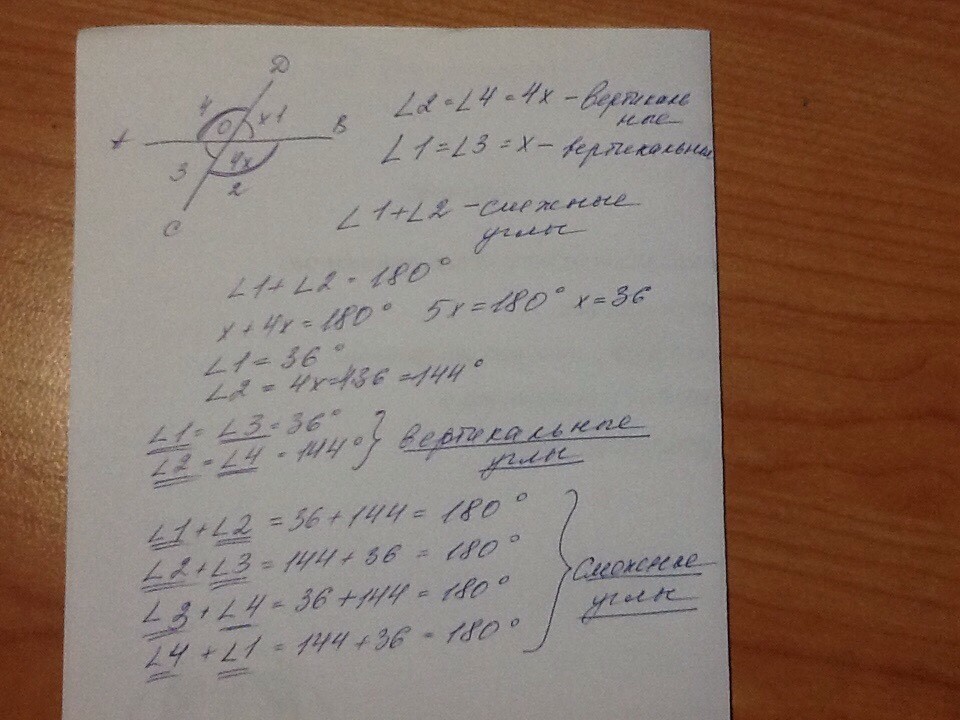 D
4
O
x 1
B
A
3
4x
2
C
∠2 = ∠4 = 4x – вертикаль
ные
∠1 = ∠3 = x – вертикальные
∠1 + ∠2 – смежные
углы
∠1 + ∠2 = 180°
x + 4x = 180° 5x = 180° x = 36
∠1 = 36°
∠2 = 4x = 4·36 = 144°
∠1 = ∠3 = 36°
∠2 = ∠4 = 144° } вертикальные
углы
∠1 + ∠2 = 36 + 144 = 180°
∠2 + ∠3 = 144 + 36 = 180°
∠3 + ∠4 = 36 + 144 = 180°
∠4 + ∠1 = 144 + 36 = 180°
} смежные
углы